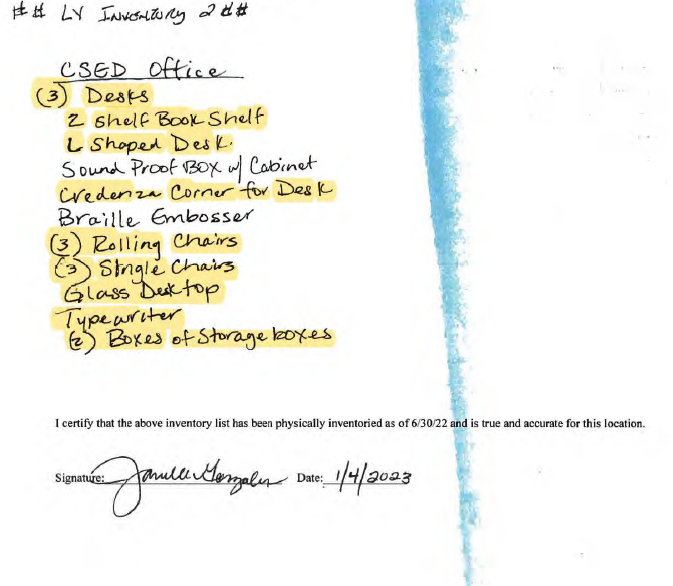 ## LV Inventory 2##
CSED Office
(3) Desks
2 Shelf Book Shelf
L Shaped Desk.
Sound Proof BOX w/ Cabinet
Credenza Corner for Desk
Braille Embosser
(3) Rolling Chairs
(3) Single Chairs
Glass Desktop
Typewriter
(2) Boxes of Storage boxes
I certify that the above inventory list has been physically inventoried as of 6/30/22 and is true and accurate for this location.
Signature: Janelle Gonzales Date: 1/4/2023